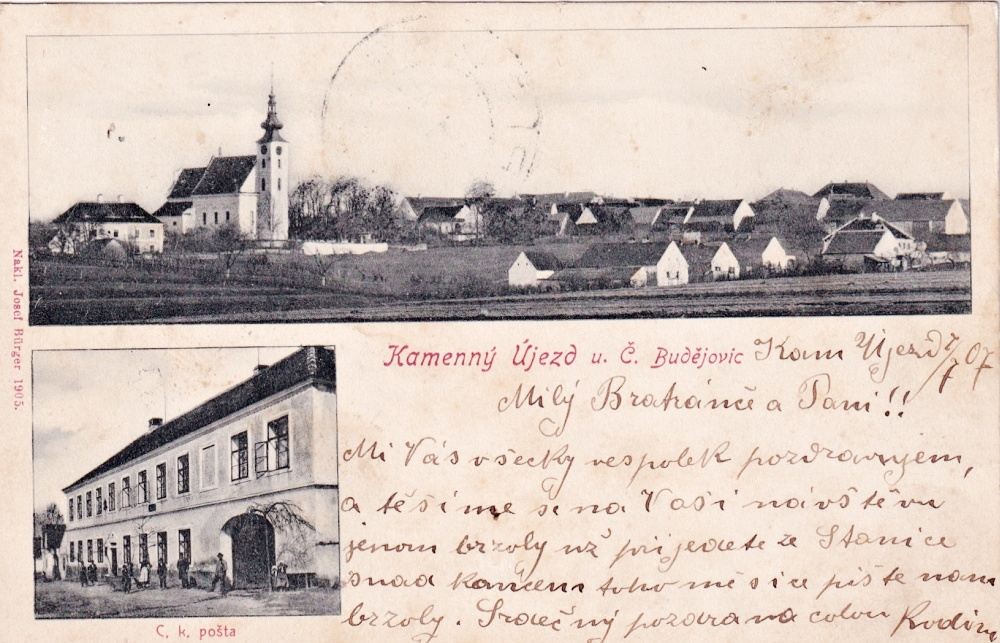 Nakl. Josef Bürger 1905.
Kamenný Újezd u. Č. Budějovic
Kam Újezd 7/7 07
Milý Bratránče a Paní!!
Mi Vás všecky vespolek pozdravujem,
a těšíme se na Vaší návštěvu
jenom brzoly už prijedete ze Stanice
snad koncem toho měsice pište nam
brzoly. Srdečný pozdrav na celou Rodinu
C. k. pošta